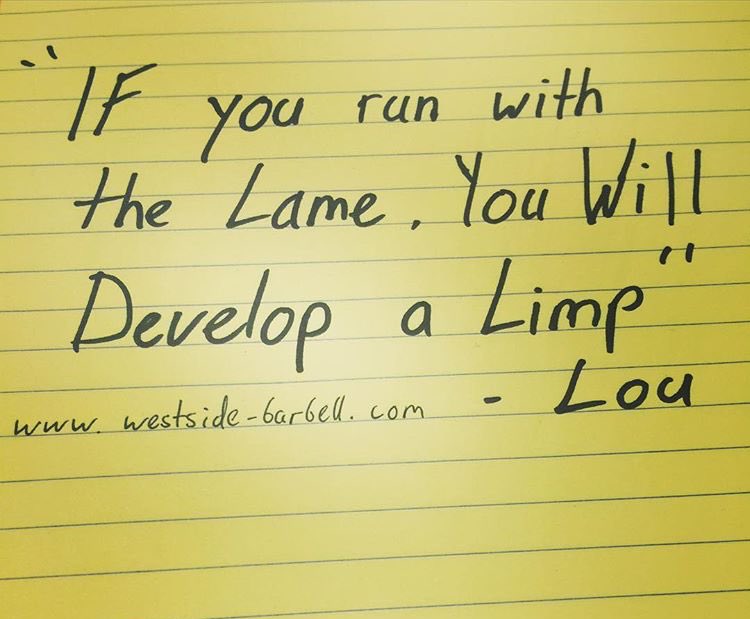 "IF you run with
the Lame, You Will
Develop a Limp"
www.westside-barbell.com - Lou